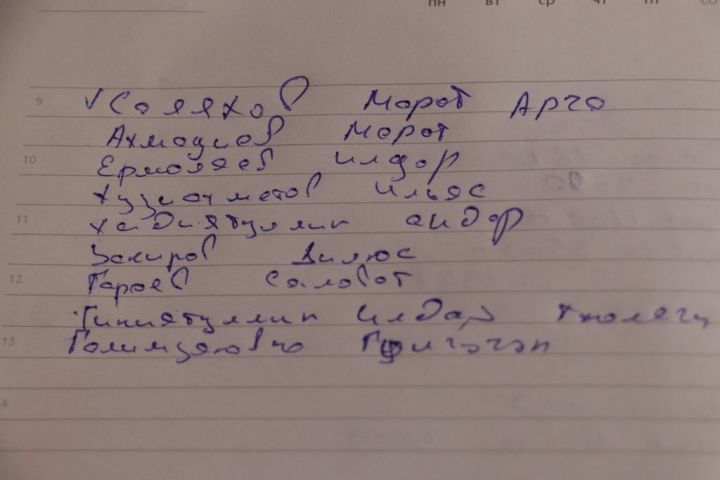 пн вт ср чт пт со
9 √ Саляхов Марат Арча
Ахмадиев Марат
10 Ермолаев Илдар
Хузиахметов Ильяс
11 Хадиятуллин Айдар
Закиров Дилюс
12 Гараев Салават
Гиниятуллин Илдар
13 Галимзяновна
4